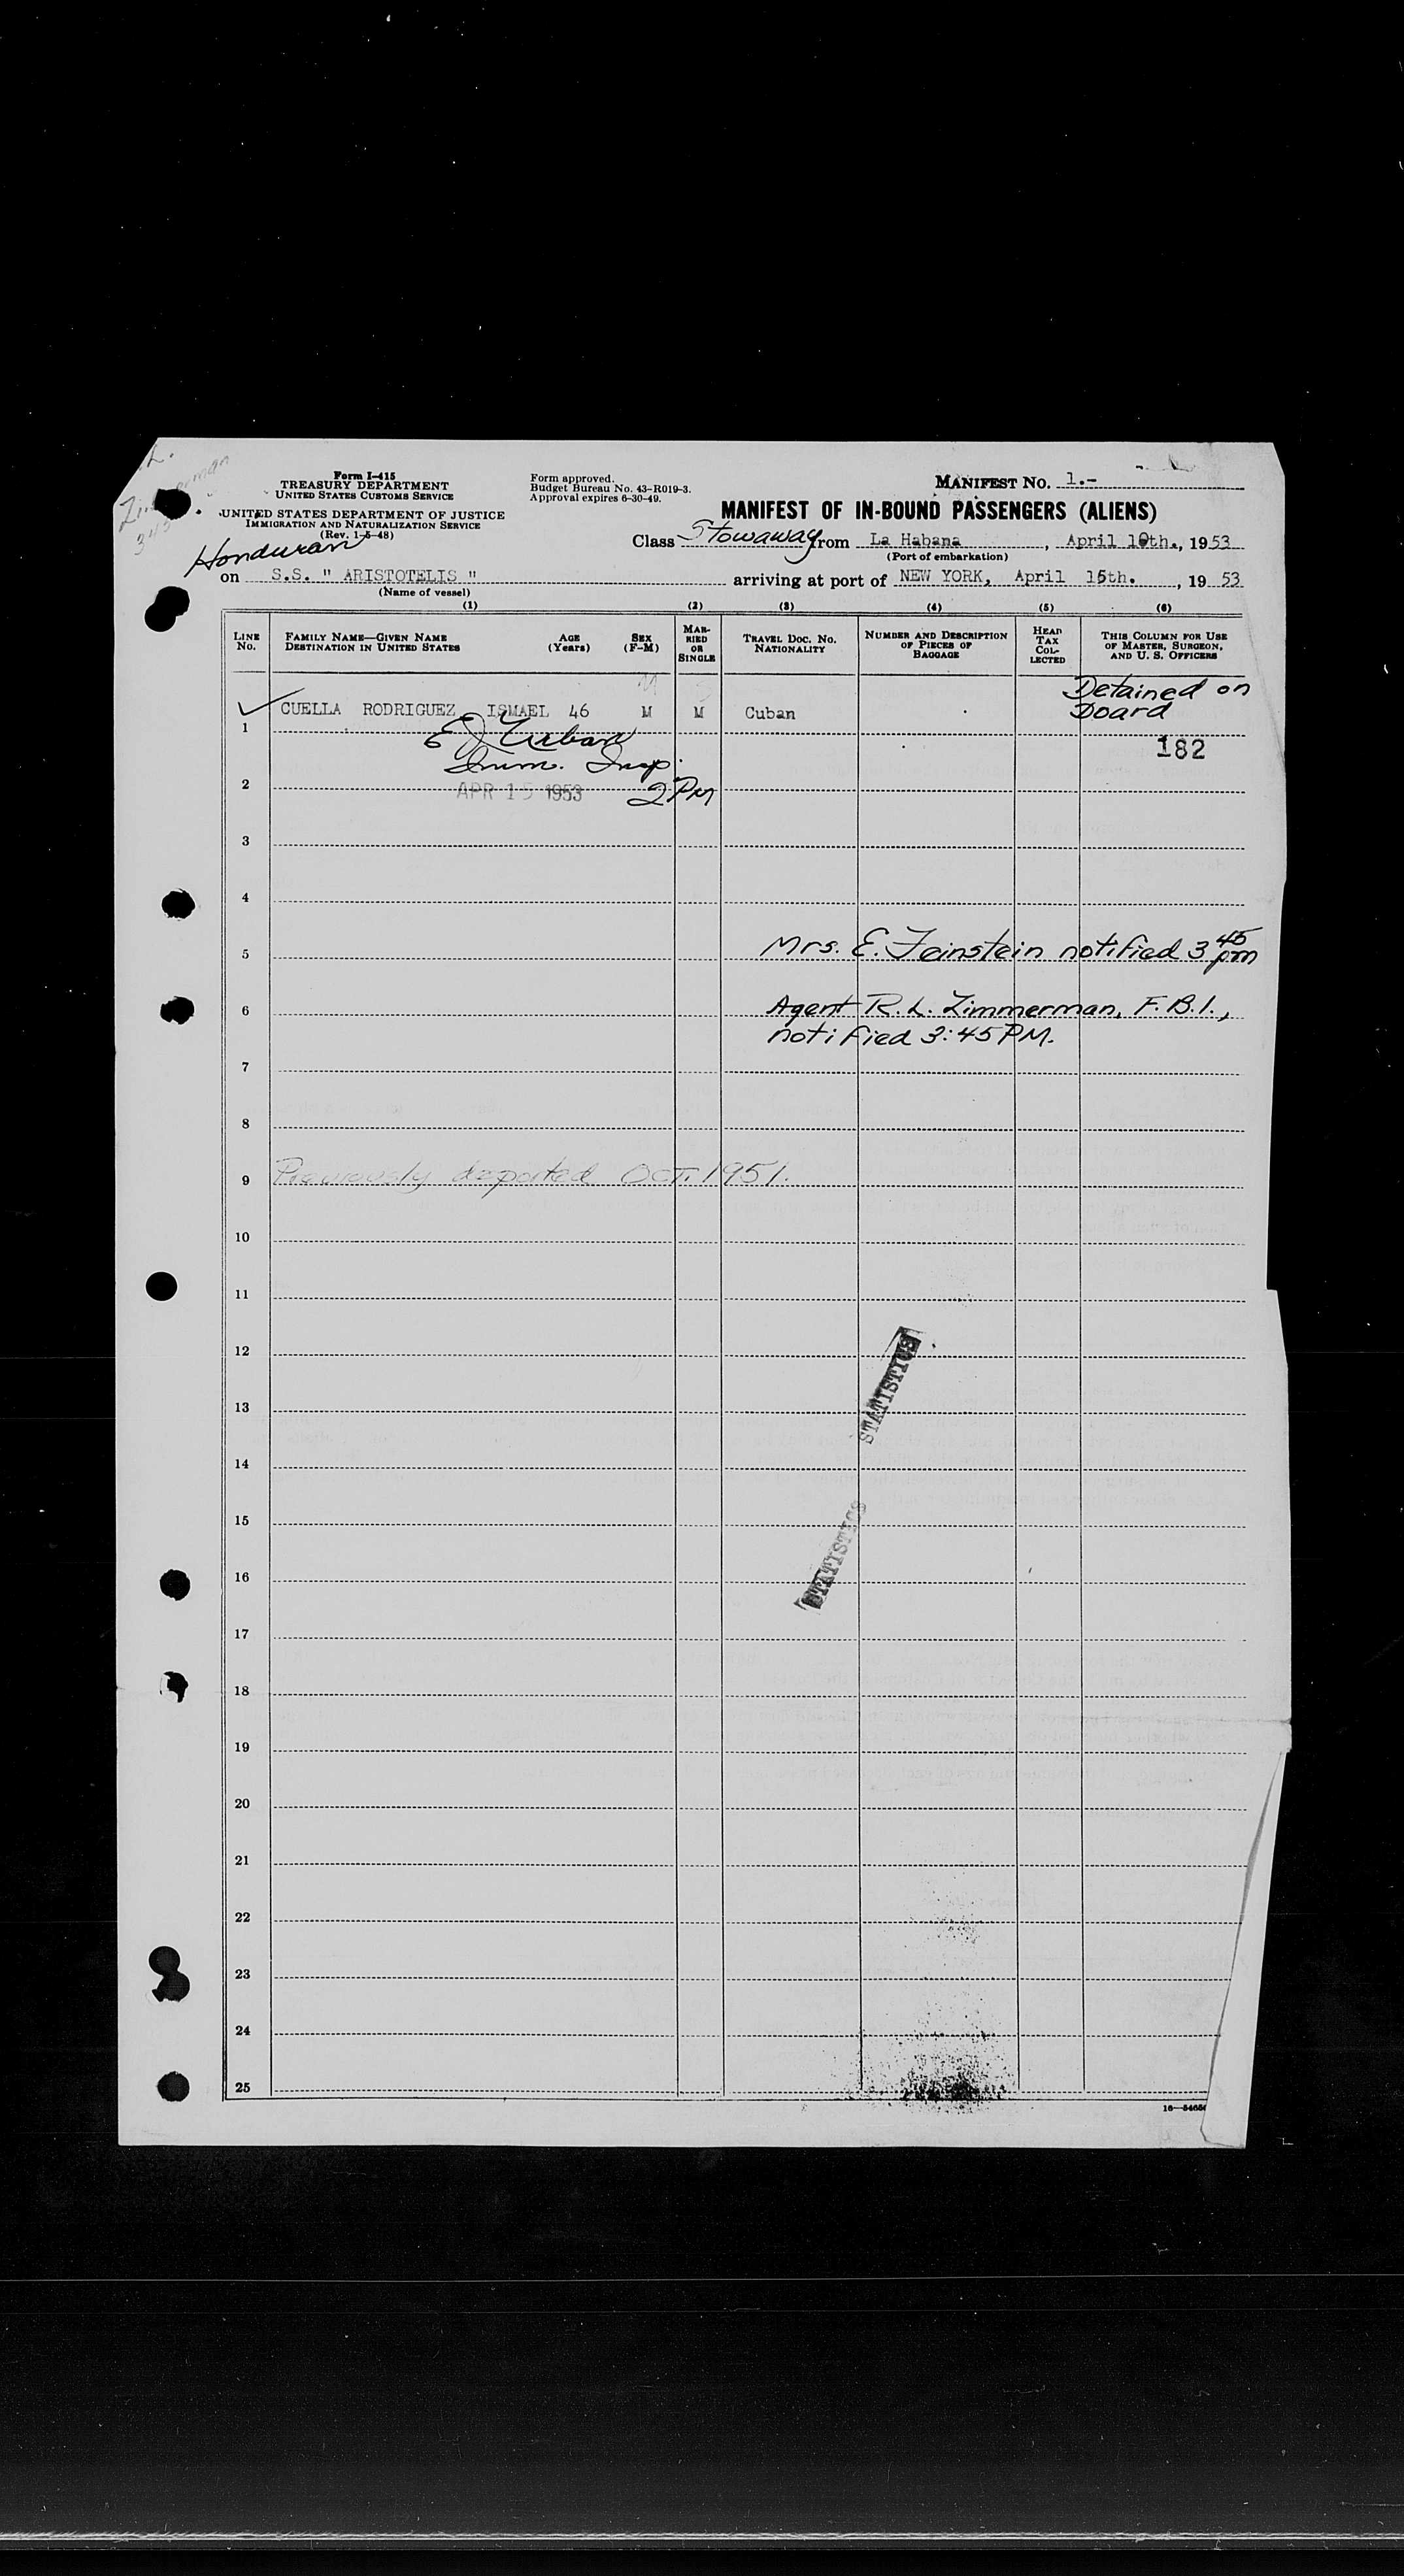 L.
Zimmerman
345
Form I-415
TREASURY DEPARTMENT
UNITED STATES CUSTOMS SERVICE
UNITED STATES DEPARTMENT OF JUSTICE
IMMIGRATION AND NATURALIZATION SERVICE
(Rev. 1-5-48)
Form approved.
Budget Bureau No. 43-R019-3.
Approval expires 6-30-49.
MANIFEST NO. 1.-
MANIFEST OF IN-BOUND PASSENGERS (ALIENS)
Class Stowaway from La Habana, April 10th., 1953
(Port of embarkation)
Honduran
on S.S. " ARISTOTELIS " arriving at port of NEW YORK, April 15th., 1953
(Name of vessel)
(1) (2) (3) (4) (5) (6)
LINE NO.
FAMILY NAME—GIVEN NAME DESTINATION IN UNITED STATES
AGE (Years)
SEX (F-M)
MARRIED OR SINGLE
TRAVEL DOC. NO. NATIONALITY
NUMBER AND DESCRIPTION OF PIECES OF BAGGAGE
HEAD TAX COLLECTED
THIS COLUMN FOR USE OF MASTER, SURGEON, AND U. S. OFFICERS
M S
Detained on
Board
1 CUELLA RODRIGUEZ ISMAEL 46 M M Cuban
182
E J Urban
Imm. Insp.
2 APR 15 1953 2 PM
3
4
5 Mrs. E. Feinstein notified 3 45 pm
6 Agent R. L. Zimmerman, F.B.I.,
notified 3:45 PM.
7
8
9 Previously deported OCT. 1951.
10
11
12
13 STATISTICS
14
15
16 STATISTICS
17
18
19
20
21
22
23
24
25